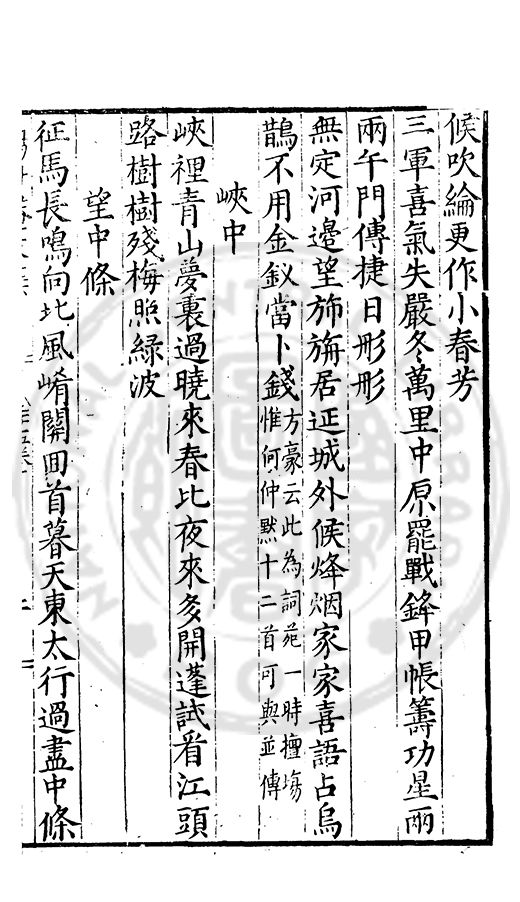 候吹綸更作小春芳
三軍喜氣失嚴冬萬里中原罷戰鋒甲帳籌功星兩
兩午門傳捷日彤彤
無定河邊望斾旃居延城外候烽烟家家喜語占烏
鵲不用金釵當卜錢方豪云此為詞苑一時擅塲
惟何仲默十二首可與並傳
峽中
峽裡青山夢裏過曉來春比夜來多開蓬試看江頭
路樹樹殘梅照綠波
望中條
征馬長鳴向北風崤關回首暮天東太行過盡中條